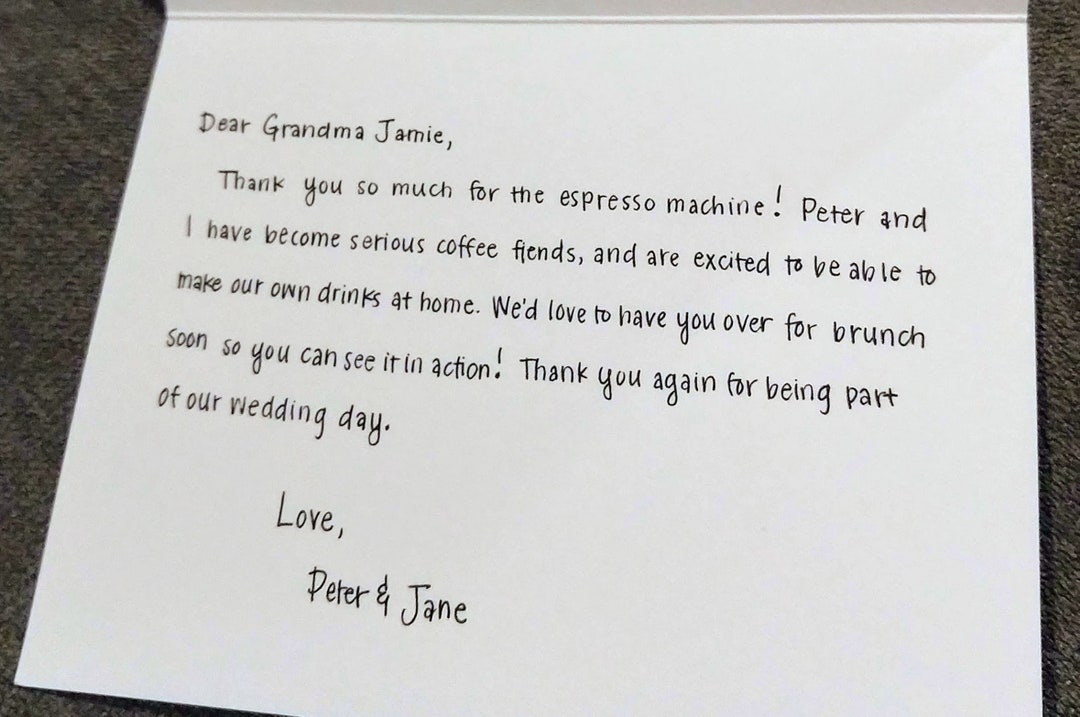 Dear Grandma Jamie,
Thank you so much for the espresso machine! Peter and
I have become serious coffee fiends, and are excited to be able to
make our own drinks at home. We'd love to have you over for brunch
soon so you can see it in action! Thank you again for being part
of our wedding day.
Love,
Peter & Jane